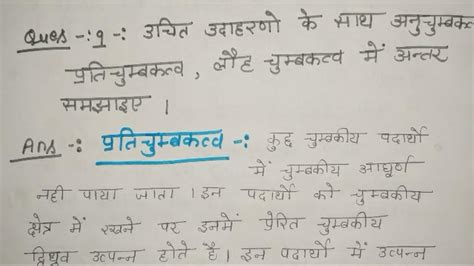 Ques -:1 -: उचित उदाहरणो के साथ अनुचुम्बकत्व
प्रतिचुम्बकत्व , लौह चुम्बकत्व में अन्तर
समझाइए ।
Ans -: प्रतिचुम्बकत्व -: कुछ चुम्बकीय पदार्थो
में चुम्बकीय आघूर्ण
नही पाया जाता । इन पदार्थो को चुम्बकीय
क्षेत्र में रखने पर इनमें प्रेरित चुम्बकीय
द्विध्रुव उत्पन्न होते है । इन पदार्थो में उत्पन्न